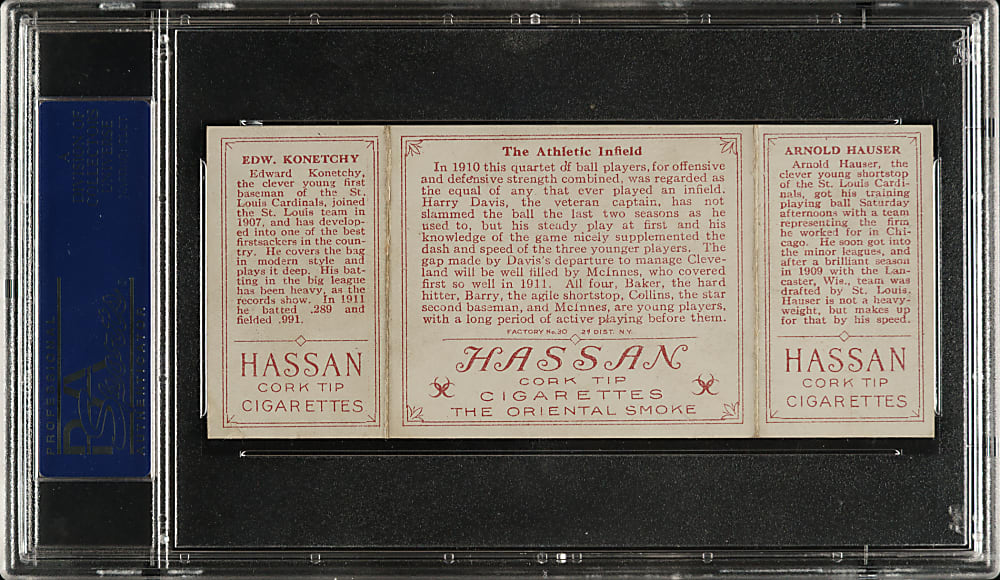 EDW. KONETCHY
Edward Konetchy,
the clever young first
baseman of the St.
Louis Cardinals, joined
the St. Louis team in
1907, and has develop-
ed into one of the best
firstsackers in the coun-
try. He covers the bag
in modern style and
plays it deep. His bat-
ting in the big league
has been heavy, as the
records show. In 1911
he batted .289 and
fielded .991.
HASSAN
CORK TIP
CIGARETTES
The Athletic Infield
In 1910 this quartet of ball players, for offensive
and defensive strength combined, was regarded as
the equal of any that ever played an infield.
Harry Davis, the veteran captain, has not
slammed the ball the last two seasons as he
used to, but his steady play at first and his
knowledge of the game nicely supplemented the
dash and speed of the three younger players. The
gap made by Davis's departure to manage Cleve-
land will be well filled by McInnes, who covered
first so well in 1911. All four, Baker, the hard
hitter, Barry, the agile shortstop, Collins, the star
second baseman, and McInnes, are young players,
with a long period of active playing before them.
FACTORY No.30 2d DIST. N.Y.
HASSAN
CORK TIP
CIGARETTES
THE ORIENTAL SMOKE
ARNOLD HAUSER
Arnold Hauser, the
clever young shortstop
of the St. Louis Cardi-
nals, got his training
playing ball Saturday
afternoons with a team
representing the firm
he worked for in Chi-
cago. He soon got into
the minor leagues, and
after a brilliant season
in 1909 with the Lan-
caster, Wis., team was
drafted by St. Louis.
Hauser is not a heavy-
weight, but makes up
for that by his speed.
HASSAN
CORK TIP
CIGARETTES
PSA